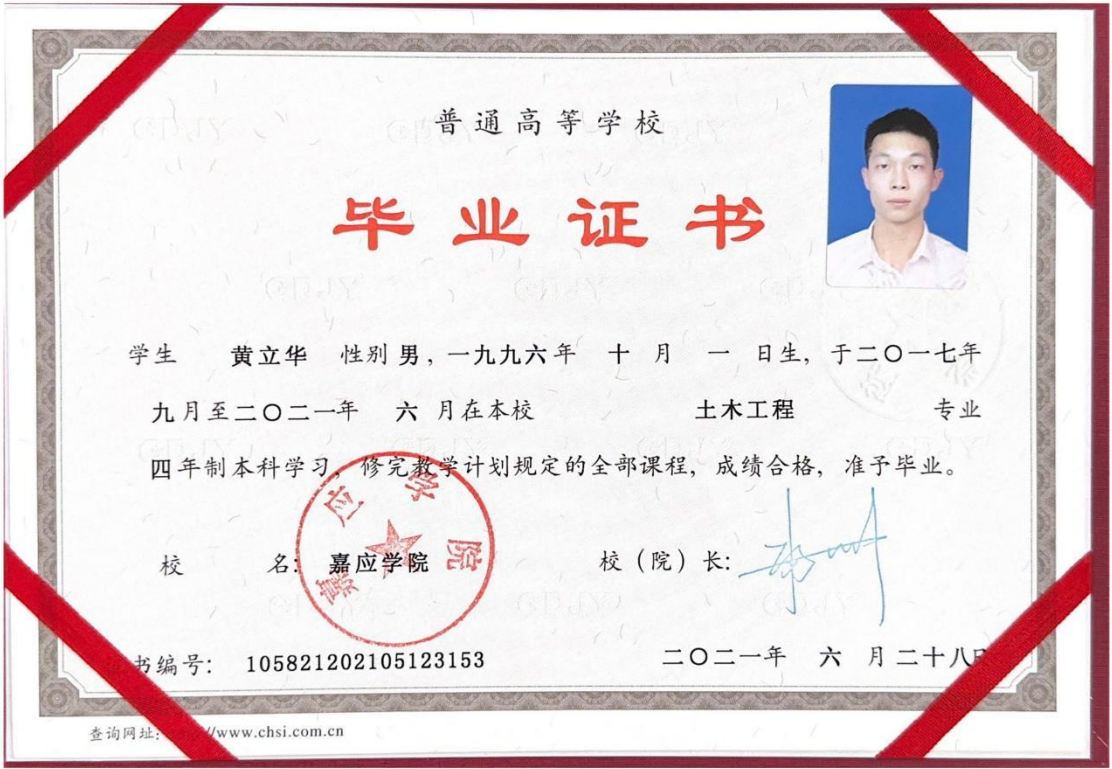 普通高等学校
毕业证书
学生 黄立华 性别 男，一九九六年 十 月 一 日生，于二〇一七年
九月至二〇二一年 六 月在本校 土木工程 专业
四年制本科学习，修完教学计划规定的全部课程，成绩合格，准予毕业。
嘉应学院
校 名: 嘉应学院 校（院）长:
书编号: 105821202105123153 二〇二一年 六 月二十八日
查询网址: //www.chsi.com.cn